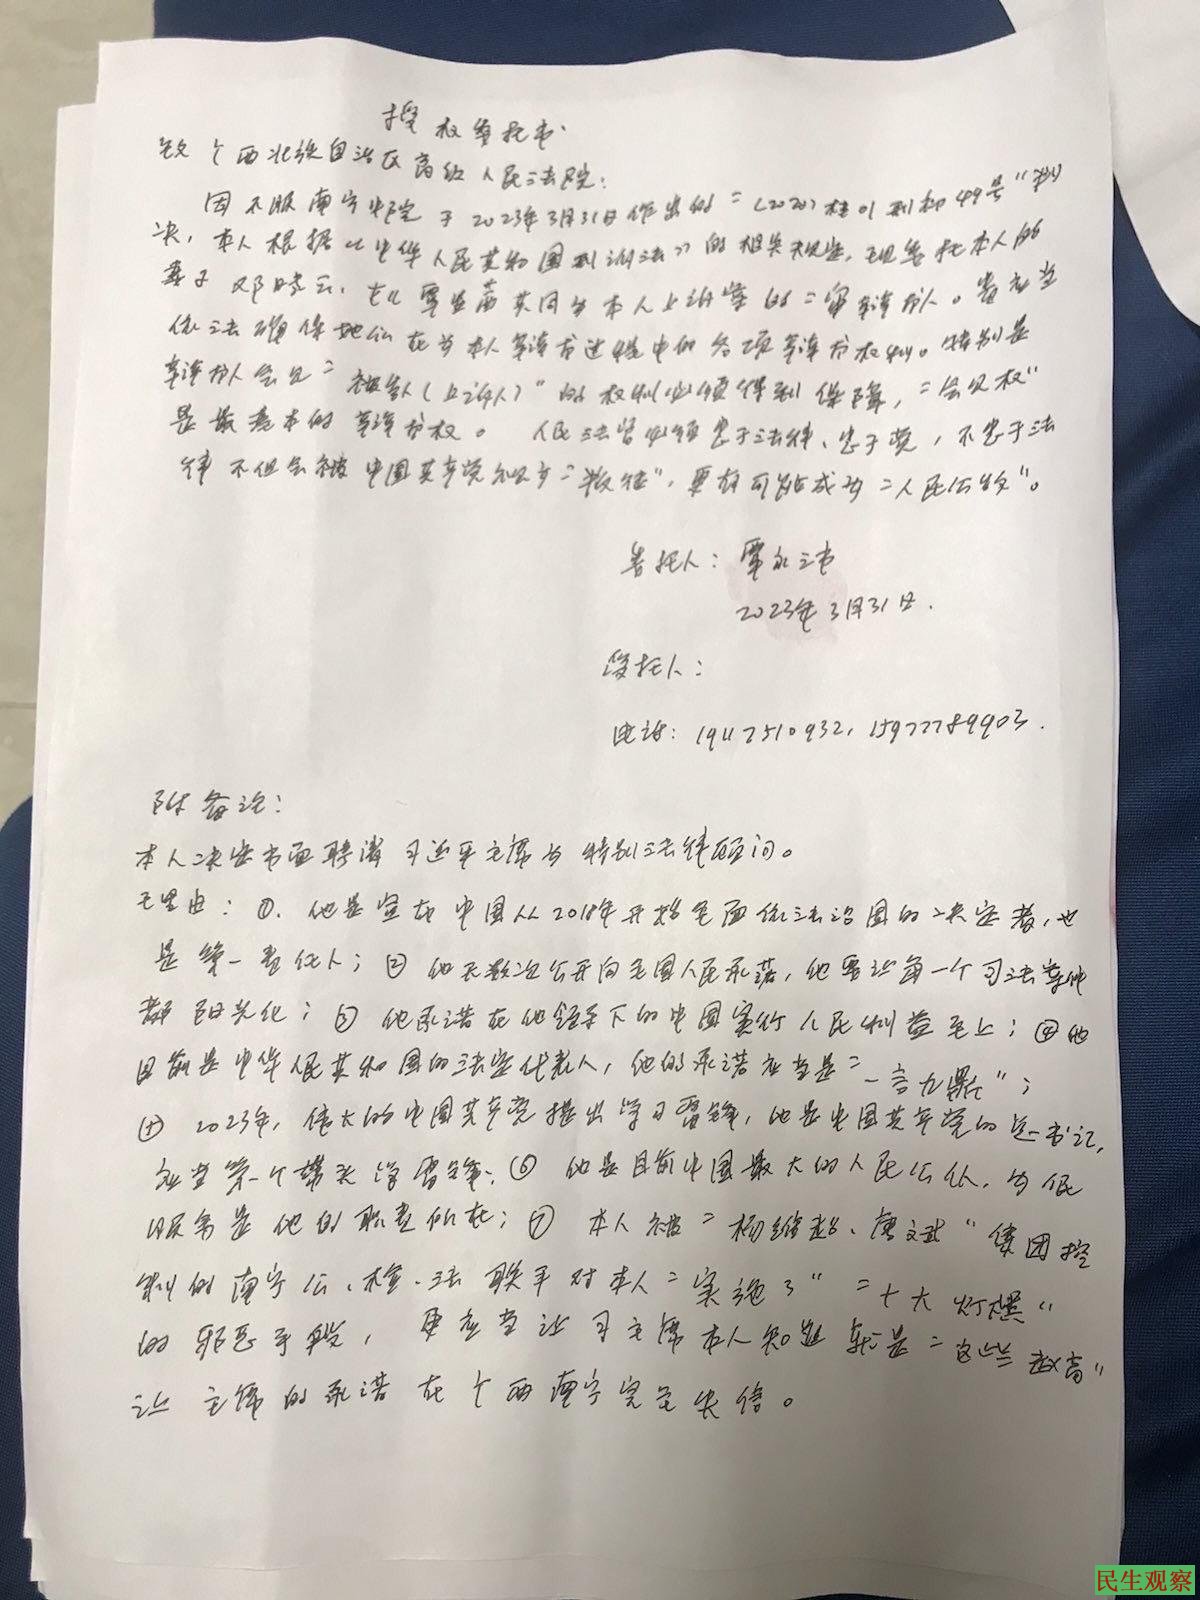 授权委托书
致广西壮族自治区高级人民法院：
因不服南宁中院于2023年3月31日作出的"(2020)桂01刑初49号"判
决，本人根据《中华人民共和国刑诉法》的相关规定，现委托本人的
妻子邓晓云、女儿覃益蒨共同为本人上诉案的二审辩护人。贵应当
依法确保她们在为本人辩护过程中的各项辩护权利。特别是
辩护人会见"被告人(上诉人)"的权利必须得到保障，"会见权"
是最基本的辩护权。人民法官必须忠于法律、忠于党，不忠于法
律不但会被中国共产党视为"叛徒"，更有可能成为"人民公敌"。
委托人：覃永沛
2023年3月31日.
受托人：
电话：15977789903.
附备注：
本人决定书面聘请习近平主席为特别法律顾问。
理由：①．他是宣在中国从2018年开始全面依法治国的决定者，也
是第一责任人；②他无数次公开向全国人民承诺，他要让每一个司法案件
都阳光化；③他承诺在他领导下的中国实行人民利益至上；④他
目前是中华人民共和国的法定代表人，他的承诺应当是"一言九鼎"；
⑤2023年，伟大的中国共产党提出学习雷锋，他是中国共产党的总书记，
应当第一个带头学雷锋；⑥他是目前中国最大的人民公仆，为民
服务是他的职责所在；⑦本人被"杨维超、唐文武"集团控
制的南宁公、检、法联手对本人"实施了""十大灯爆"
的邪恶手段，更应当让习主席本人知道就是"这些赵高"
让主席的承诺在广西南宁完全失信。
民生观察